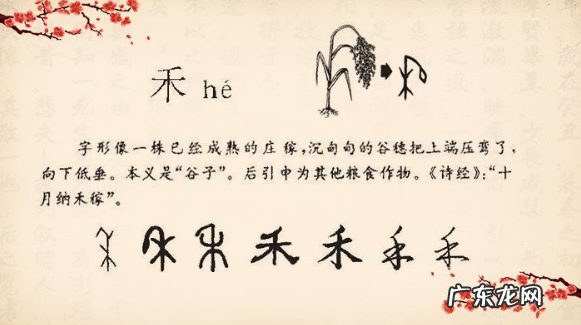 禾 hé
字形像一株已经成熟的庄稼，沉甸甸的谷穗把上端压弯了，
向下低垂。本义是“谷子”。后引申为其他粮食作物。《诗经》：“十
月纳禾稼”。
禾 禾 禾 禾
广东龙网